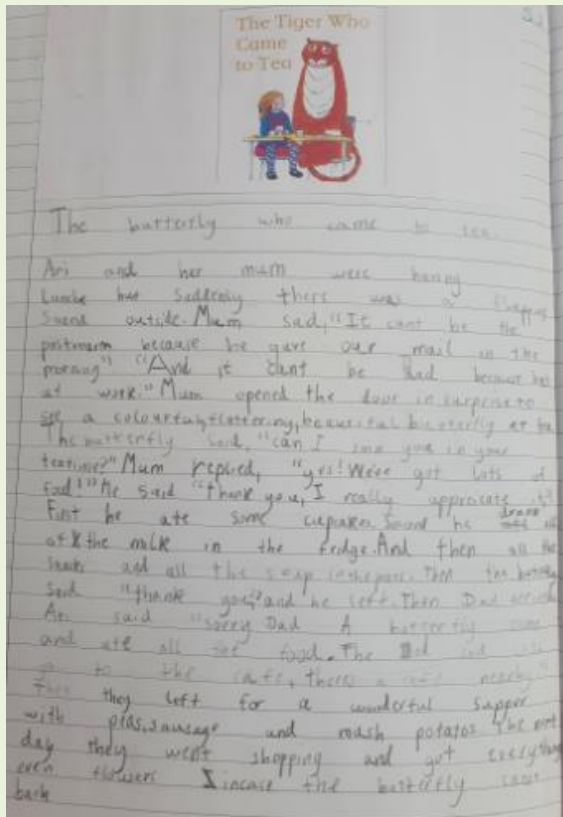 The Tiger Who
Came
to Tea
The butterfly who came to tea.
Ari and her mum were having
Lunche but Suddenly there was a flapping
Sound outside. Mum sad, "It cant be the
postman because he gave our mail in the
morning" "And it cant be Dad because hes
at work." Mum opened the door in surprise to
see a colourful, fluttering, beautiful butterfly at
The butterfly said, "can I join you in your
teatime?" Mum replied, "yes! We've got lots of
food!" He said "thank you, I really appreicate it"
First he ate some cupcakes. Second he drank all
of the milk in the fridge. And then all the
and all the soup in the pan. Then the butterfly
said "thank you," and he left. Then Dad
Ari said "sorry Dad A butterfly came
and ate all the food. The Dad
to the cafe, there's a cafe nearby"
they left for a wonderful supper
with peas, sausage and mash potatos The next
day they went shopping and got everything
even flowers incase the butterfly came
back